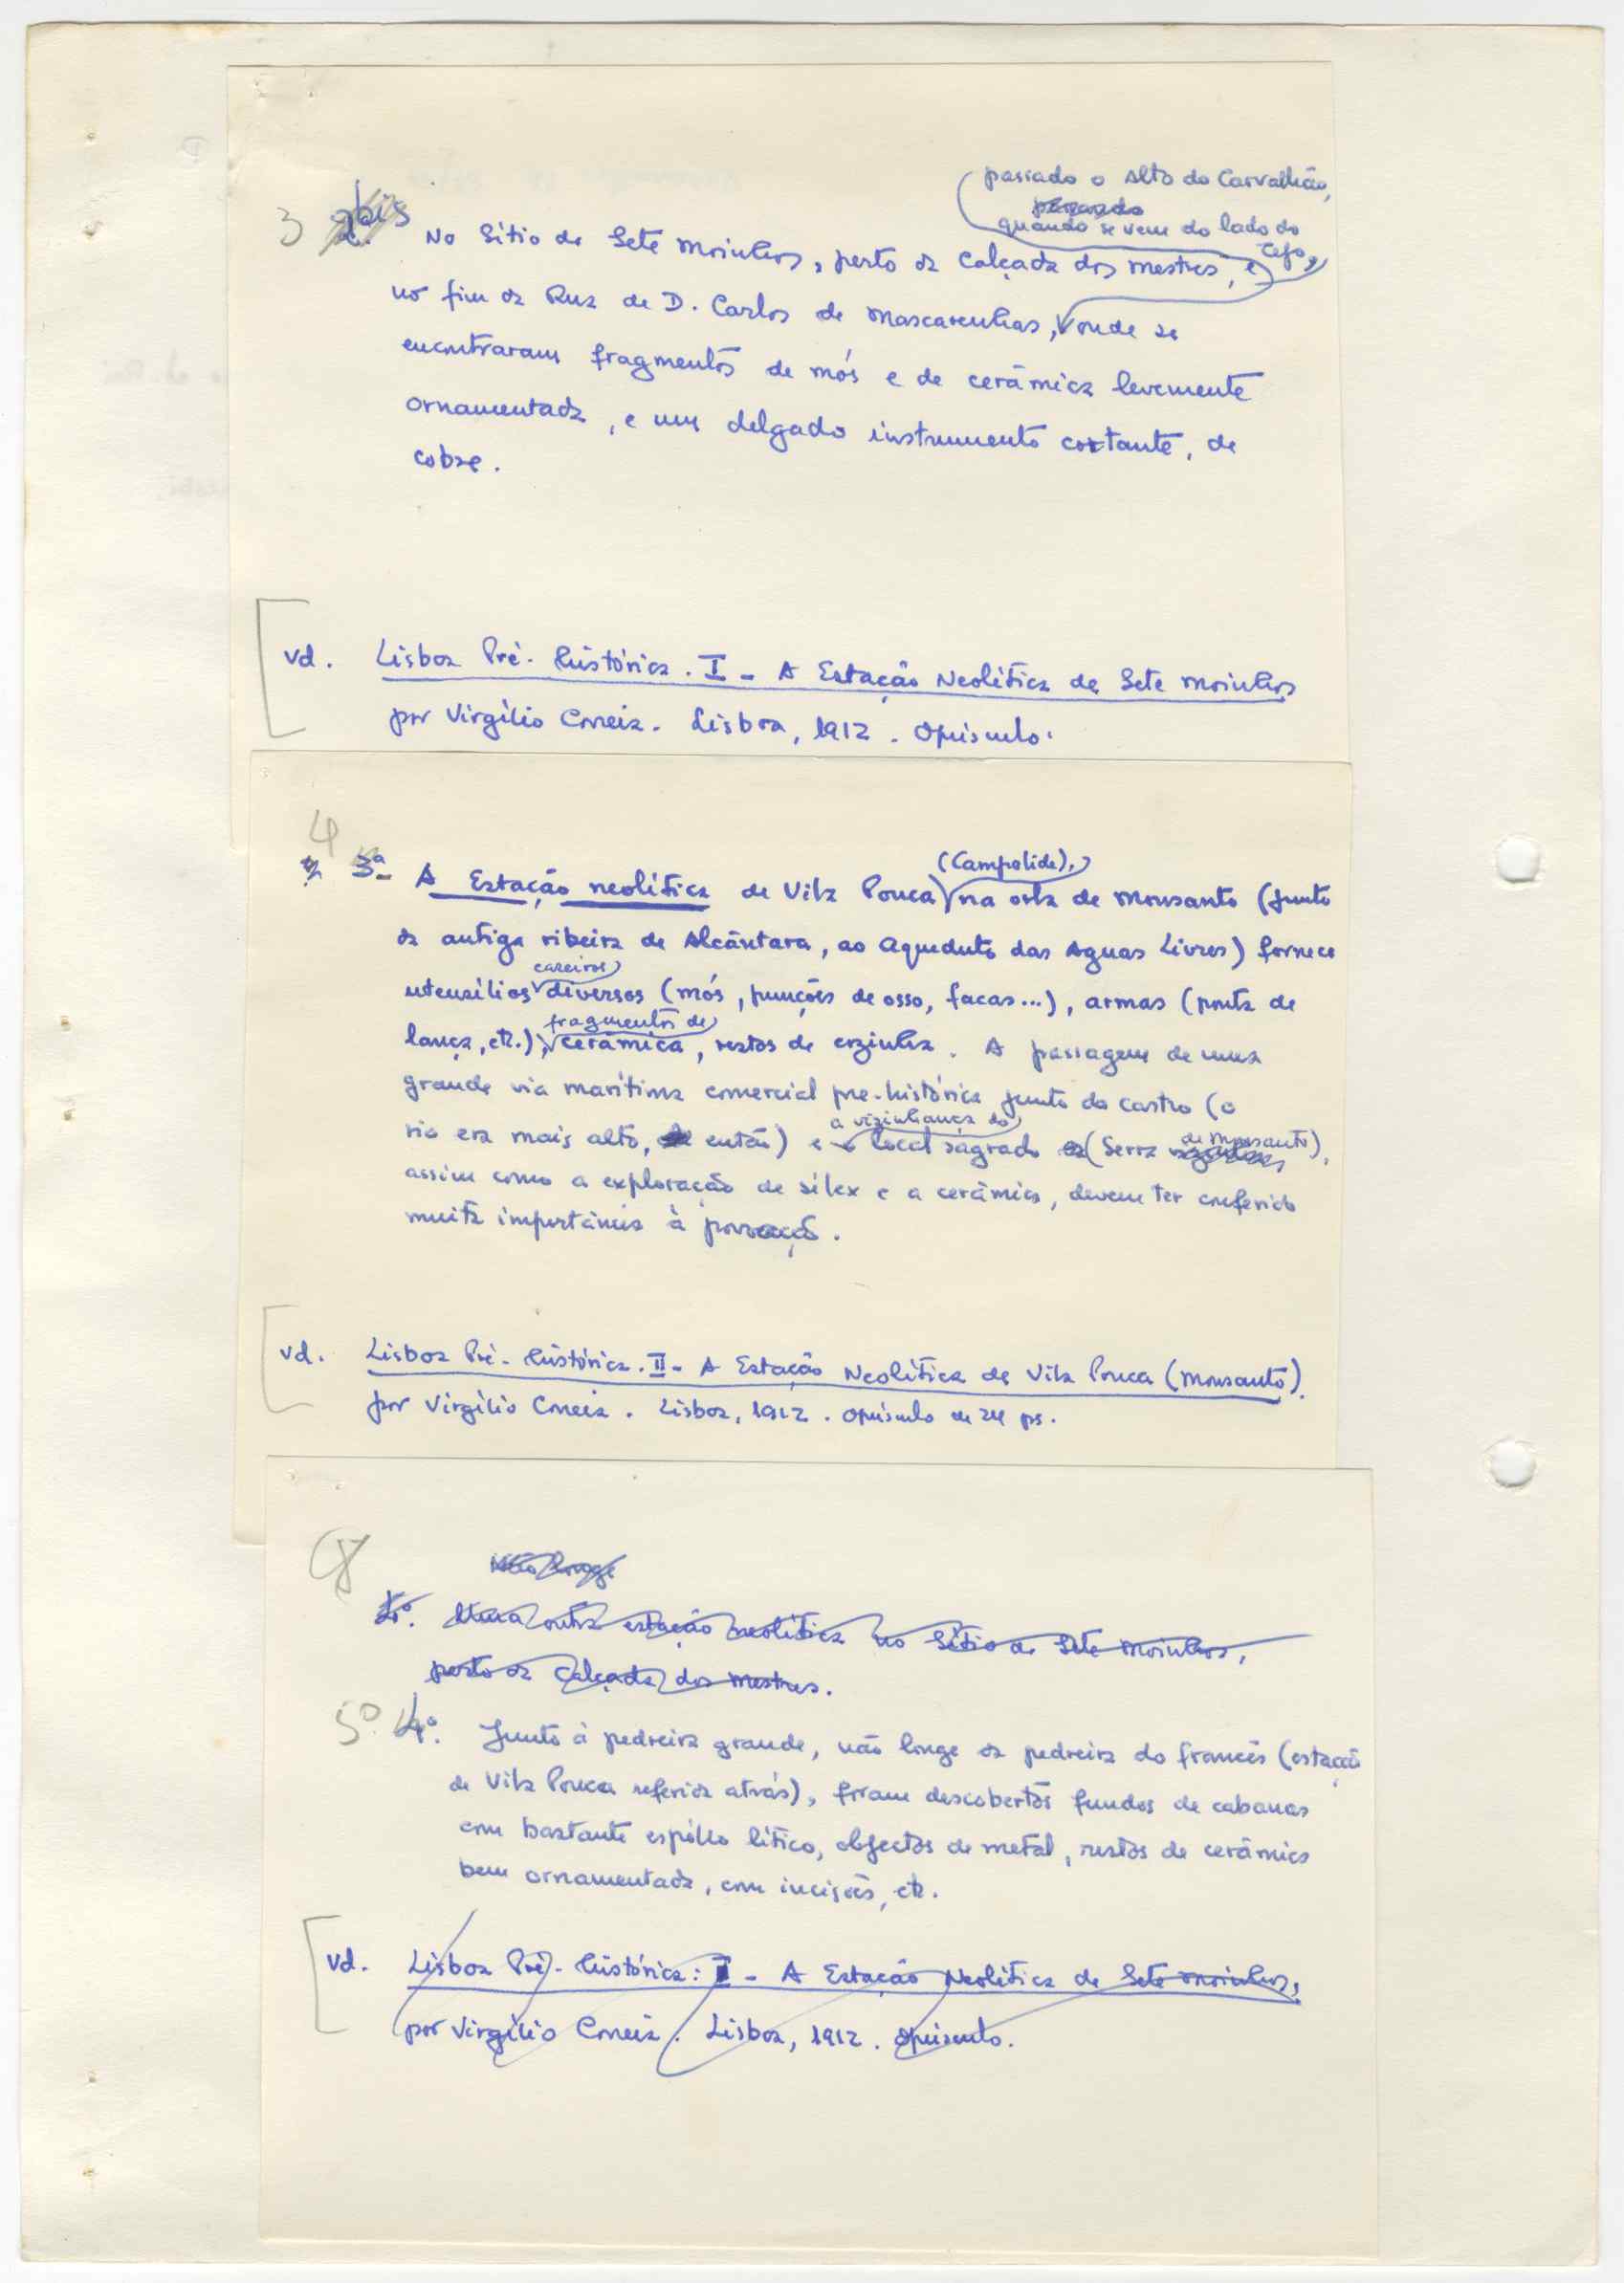 passado o Alto do Carvalhão,
quando se vem do lado do
Tejo,
3 2. bis No Sítio de Sete Moinhos, perto da Calçada dos Mestres, e
no fim da Rua de D. Carlos de Mascarenhas, onde se
encontraram fragmentos de mós e de cerâmica levemente
ornamentada, e um delgado instrumento cortante, de
cobre.
vd. Lisboa Pré-histórica. I - A Estação Neolítica de Sete Moinhos
por Virgílio Correia. Lisboa, 1912. Opúsculo.
4
(Campolide),
3ª A Estação neolítica de Vila Pouca na orla de Monsanto (junto
da antiga ribeira de Alcântara, ao Aqueduto das Aguas Livres) fornece
caseiros
utensílios diversos (mós, punções de osso, facas...), armas (ponta de
fragmentos de
lança, etc.), cerâmica, restos de cozinha. A passagem de uma
grande via marítima comercial pre-histórica junto do castro (o
a vizinhança do
rio era mais alto, então) e o local sagrado (Serra de Monsanto),
assim como a exploração de sílex e a cerâmica, devem ter conferido
muita importância à povoação.
vd. Lisboa Pré-histórica. II - A Estação Neolítica de Vila Pouca (Monsanto).
por Virgílio Correia. Lisboa, 1912. Opúsculo de 24 ps.
4º. Uma outra estação neolítica no Sítio de Sete Moinhos,
perto da Calçada dos Mestres.
5º. 4º. Junto à pedreira grande, não longe da pedreira do francês (estação
de Vila Pouca referida atrás), foram descobertos fundos de cabanas
com bastante espólio lítico, objectos de metal, restos de cerâmica
bem ornamentada, com incisões, etc.
vd. Lisboa Pré-histórica: I - A Estação Neolítica de Sete Moinhos,
por Virgílio Correia. Lisboa, 1912. Opúsculo.